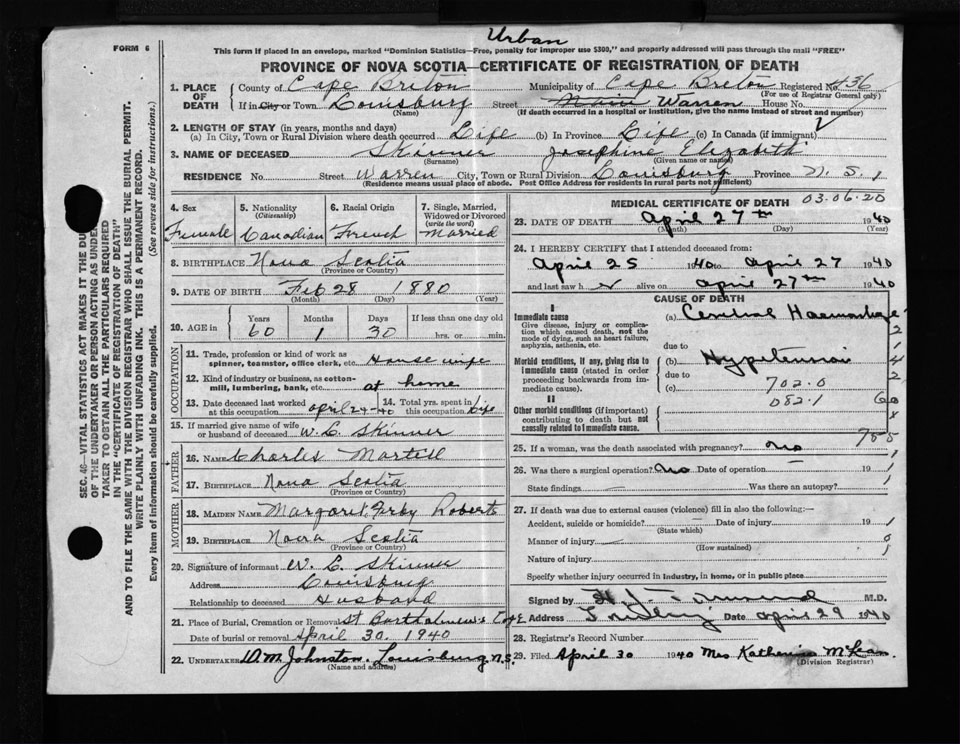 Urban
FORM 6
This form if placed in an envelope, marked "Dominion Statistics—Free, penalty for improper use $300," and properly addressed will pass through the mail "FREE"
PROVINCE OF NOVA SCOTIA—CERTIFICATE OF REGISTRATION OF DEATH
1. PLACE OF DEATH County of Cape Breton Municipality of Cape Breton Registered No. 436
(For use of Registrar General only)
If in City or Town Louisburg Street Main Warren House No.
(Name) (If death occurred in a hospital or institution, give the name instead of street and number)
2. LENGTH OF STAY (in years, months and days)
(a) In City, Town or Rural Division where death occurred Life (b) In Province Life (c) In Canada (if immigrant)
3. NAME OF DECEASED Skinner Josephine Elizabeth
(Surname) (Given name or names)
RESIDENCE No. Street Warren City, Town or Rural Division Louisburg Province N.S.
(Residence means usual place of abode. Post Office Address for residents in rural parts not sufficient)
4. Sex Female
5. Nationality (Citizenship) Canadian
6. Racial Origin French
7. Single, Married, Widowed or Divorced (write the word) Married
8. BIRTHPLACE Nova Scotia
(Province or Country)
9. DATE OF BIRTH Feb 28 1880
(Month) (Day) (Year)
10. AGE in Years 60 Months 1 Days 30 If less than one day old hrs. or min.
OCCUPATION
11. Trade, profession or kind of work as spinner, teamster, office clerk, etc. House wife
12. Kind of industry or business, as cotton-mill, lumbering, bank, etc. at home
13. Date deceased last worked at this occupation april 24-40
14. Total yrs. spent in this occupation Life
15. If married give name of wife or husband of deceased W. L. Skinner
FATHER
16. Name Charles Martell
17. Birthplace Nova Scotia
(Province or Country)
MOTHER
18. Maiden Name Margaret Roberts
19. Birthplace Nova Scotia
(Province or Country)
20. Signature of informant W. L. Skinner
Address Louisburg
Relationship to deceased Husband
21. Place of Burial, Cremation or Removal St Bartholmews
Date of burial or removal April 30. 1940
22. Undertaker D.M. Johnston. Louisburg N.S.
(Name and address)
MEDICAL CERTIFICATE OF DEATH 03.06.20
23. DATE OF DEATH April 27th 1940
(Month) (Day) (Year)
24. I HEREBY CERTIFY that I attended deceased from:
April 25 1940 to April 27 1940
and last saw her alive on April 27th 1940
CAUSE OF DEATH
I
Immediate cause (a) Cerebral Haemorrhage
Give disease, injury or complication which caused death, not the mode of dying, such as heart failure, asphyxia, asthenia, etc.
due to
Morbid conditions, if any, giving rise to immediate cause (stated in order proceeding backwards from immediate cause).
(b) Hypertension
due to
(c) 702.0
082.1
II
Other morbid conditions (if important) contributing to death but not causally related to immediate cause.
25. If a woman, was the death associated with pregnancy? no
26. Was there a surgical operation? No Date of operation 19
State findings Was there an autopsy?
27. If death was due to external causes (violence) fill in also the following:—
Accident, suicide or homicide? Date of injury 19
(State which)
Manner of injury
(How sustained)
Nature of injury
Specify whether injury occurred in industry, in home, or in public place
Signed by M.D.
Address Date april 29 1940
28. Registrar's Record Number
29. Filed April 30 1940 Mrs Katherine McLean
(Division Registrar)
SEC. 46—VITAL STATISTICS ACT MAKES IT THE DU
OF THE UNDERTAKER OR PERSON ACTING AS UNDE
TAKER TO OBTAIN ALL THE PARTICULARS REQUIRED
IN THE "CERTIFICATE OF REGISTRATION OF DEATH"
AND TO FILE THE SAME WITH THE DIVISION REGISTRAR WHO SHALL ISSUE THE BURIAL PERMIT.
WRITE PLAINLY WITH UNFADING INK. THIS IS A PERMANENT RECORD.
Every item of information should be carefully supplied. (See reverse side for instructions.)